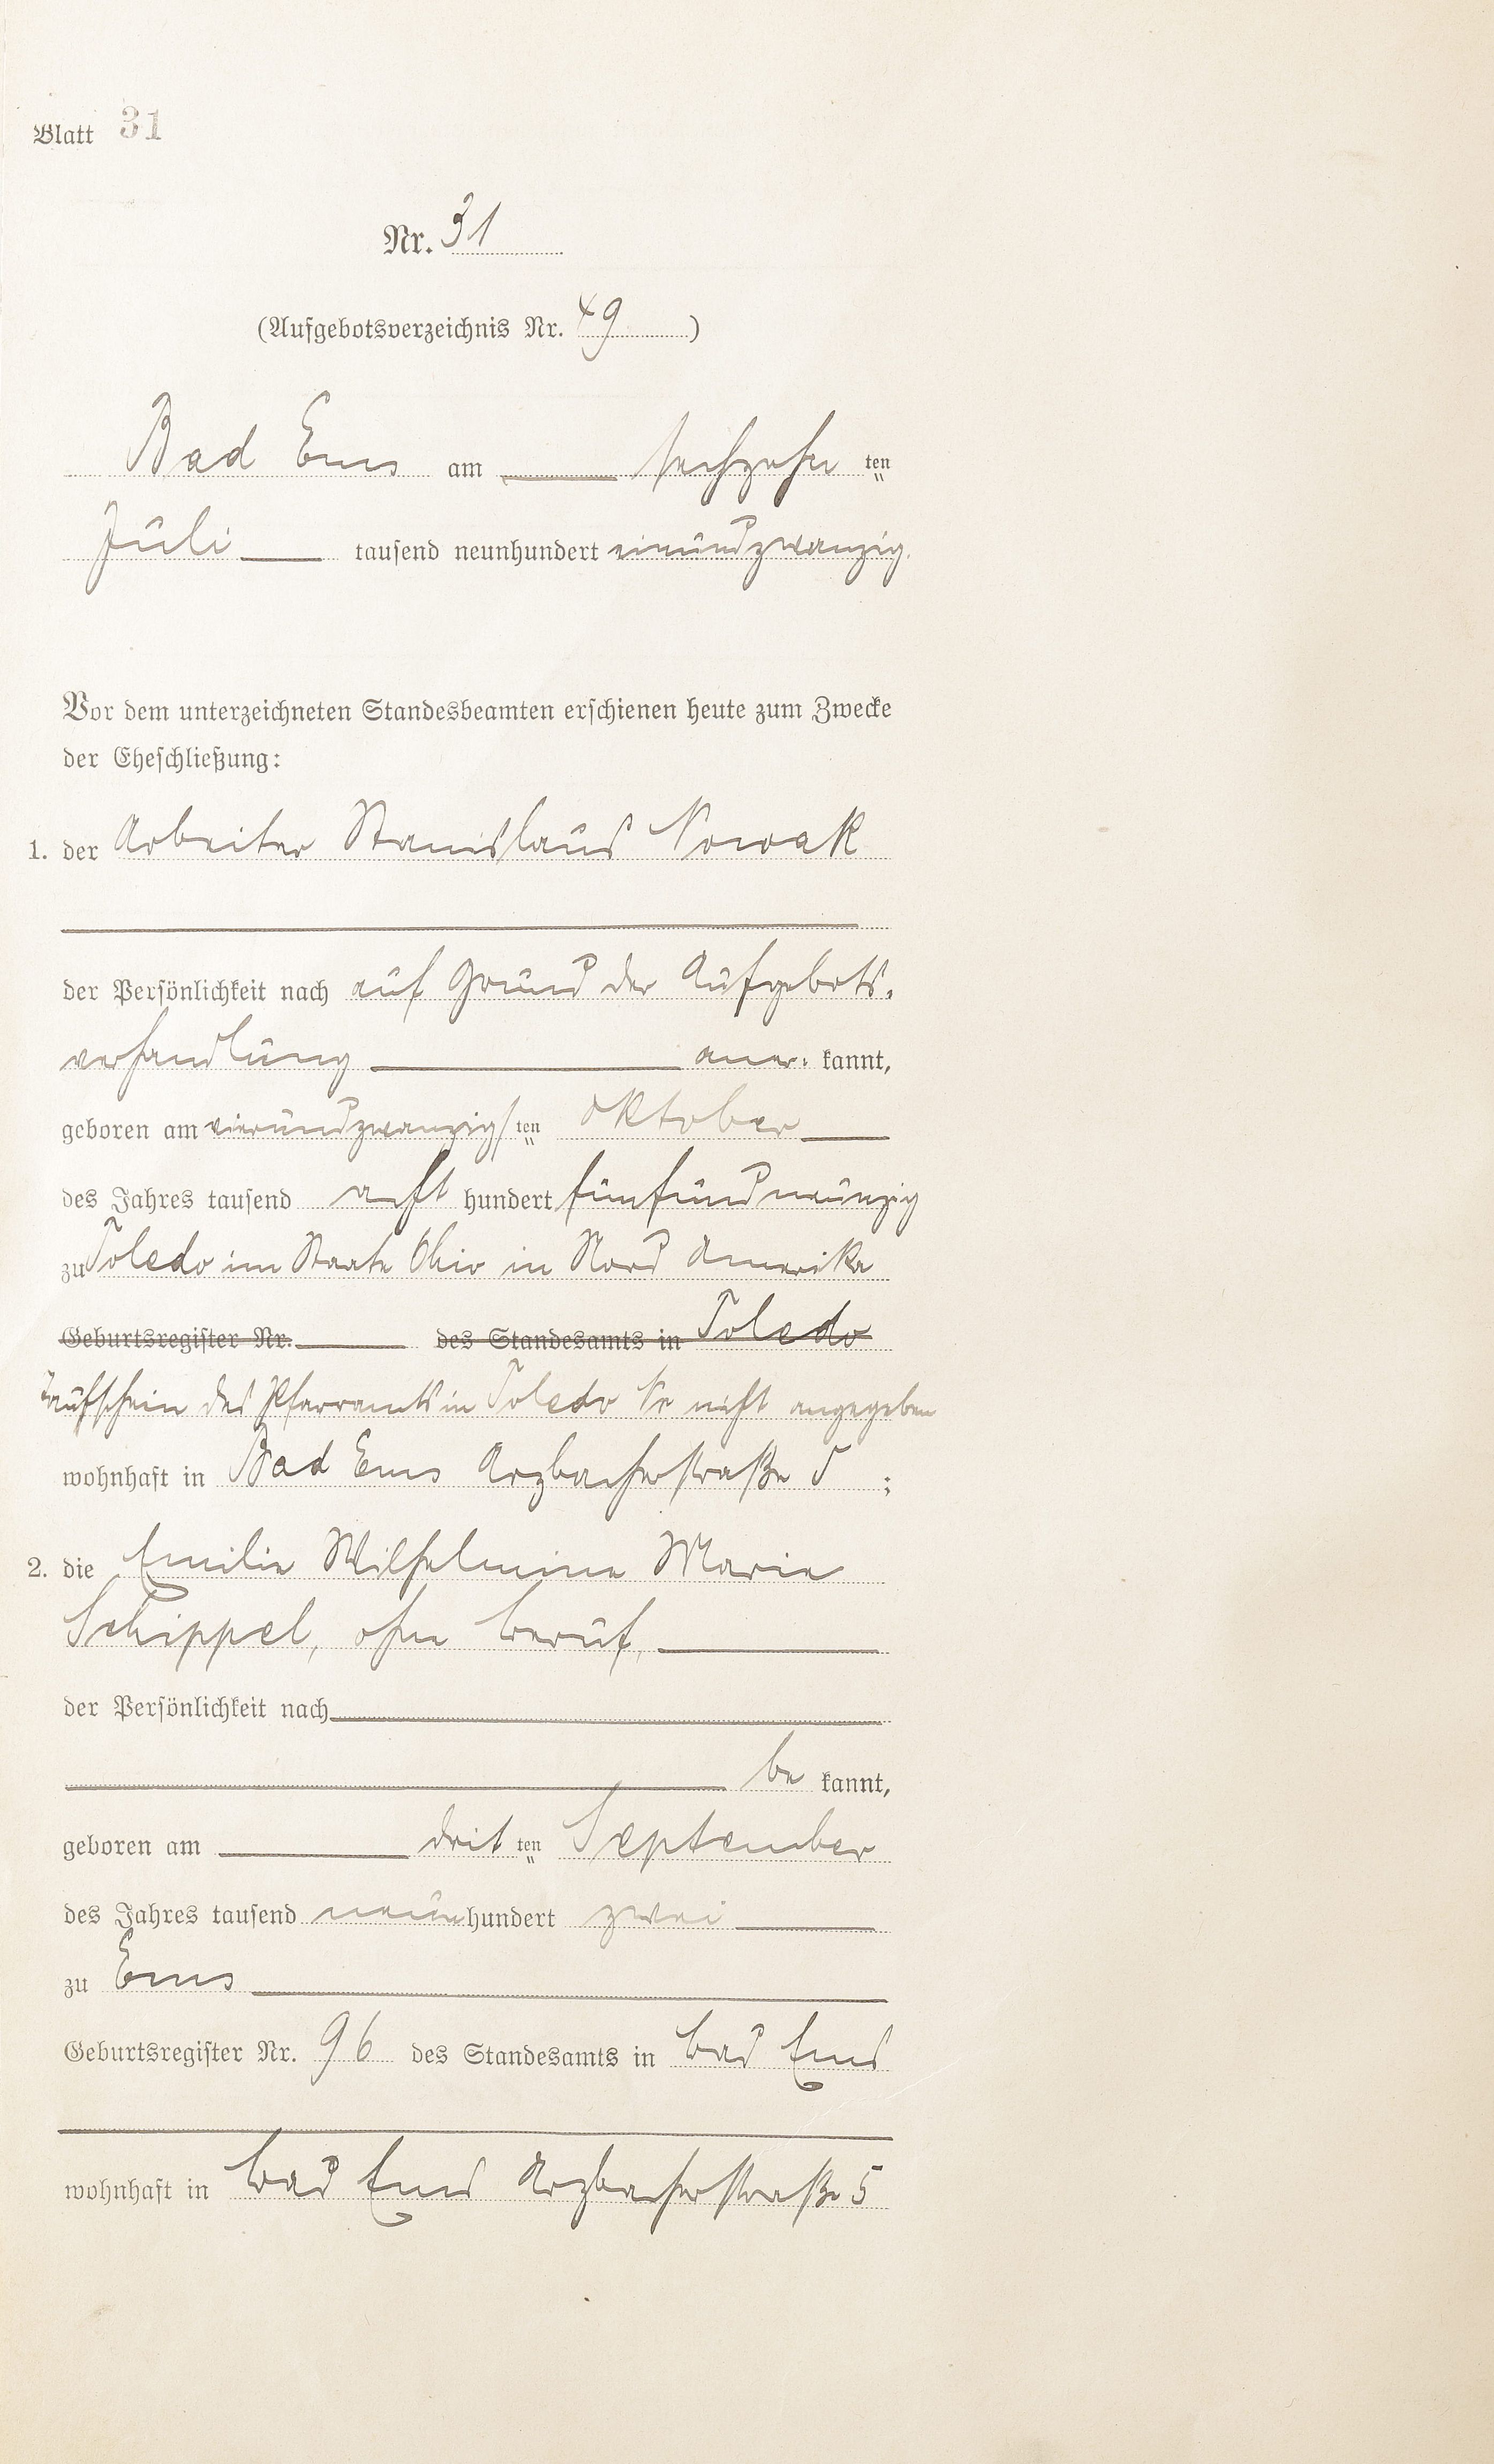 Blatt 31
Nr. 31
(Aufgebotsverzeichnis Nr. 49)
Bad Ems am sechzehn ten
Juli tausend neunhundert einundzwanzig.
Vor dem unterzeichneten Standesbeamten erschienen heute zum Zwecke
der Eheschließung:
1. der Arbeiter Stanislaus Nowak
der Persönlichkeit nach auf Grund der Aufgebots-
verhandlung aner- kannt,
geboren am vierundzwanzigs ten Oktober
des Jahres tausend acht hundert fünfundneunzig
zu Toledo im Staate Ohio in Nord Amerika
Geburtsregister Nr. des Standesamts in Toledo
Taufschein des Pfarramts in Toledo Nr nicht angegeben
wohnhaft in Bad Ems Arzbacherstraße 5 ;
2. die Emilie Wilhelmine Marie
Schippel, ohne Beruf,
der Persönlichkeit nach
be kannt,
geboren am drit ten September
des Jahres tausend neun hundert zwei
zu Ems
Geburtsregister Nr. 96 des Standesamts in Bad Ems
wohnhaft in Bad Ems Arzbacherstraße 5